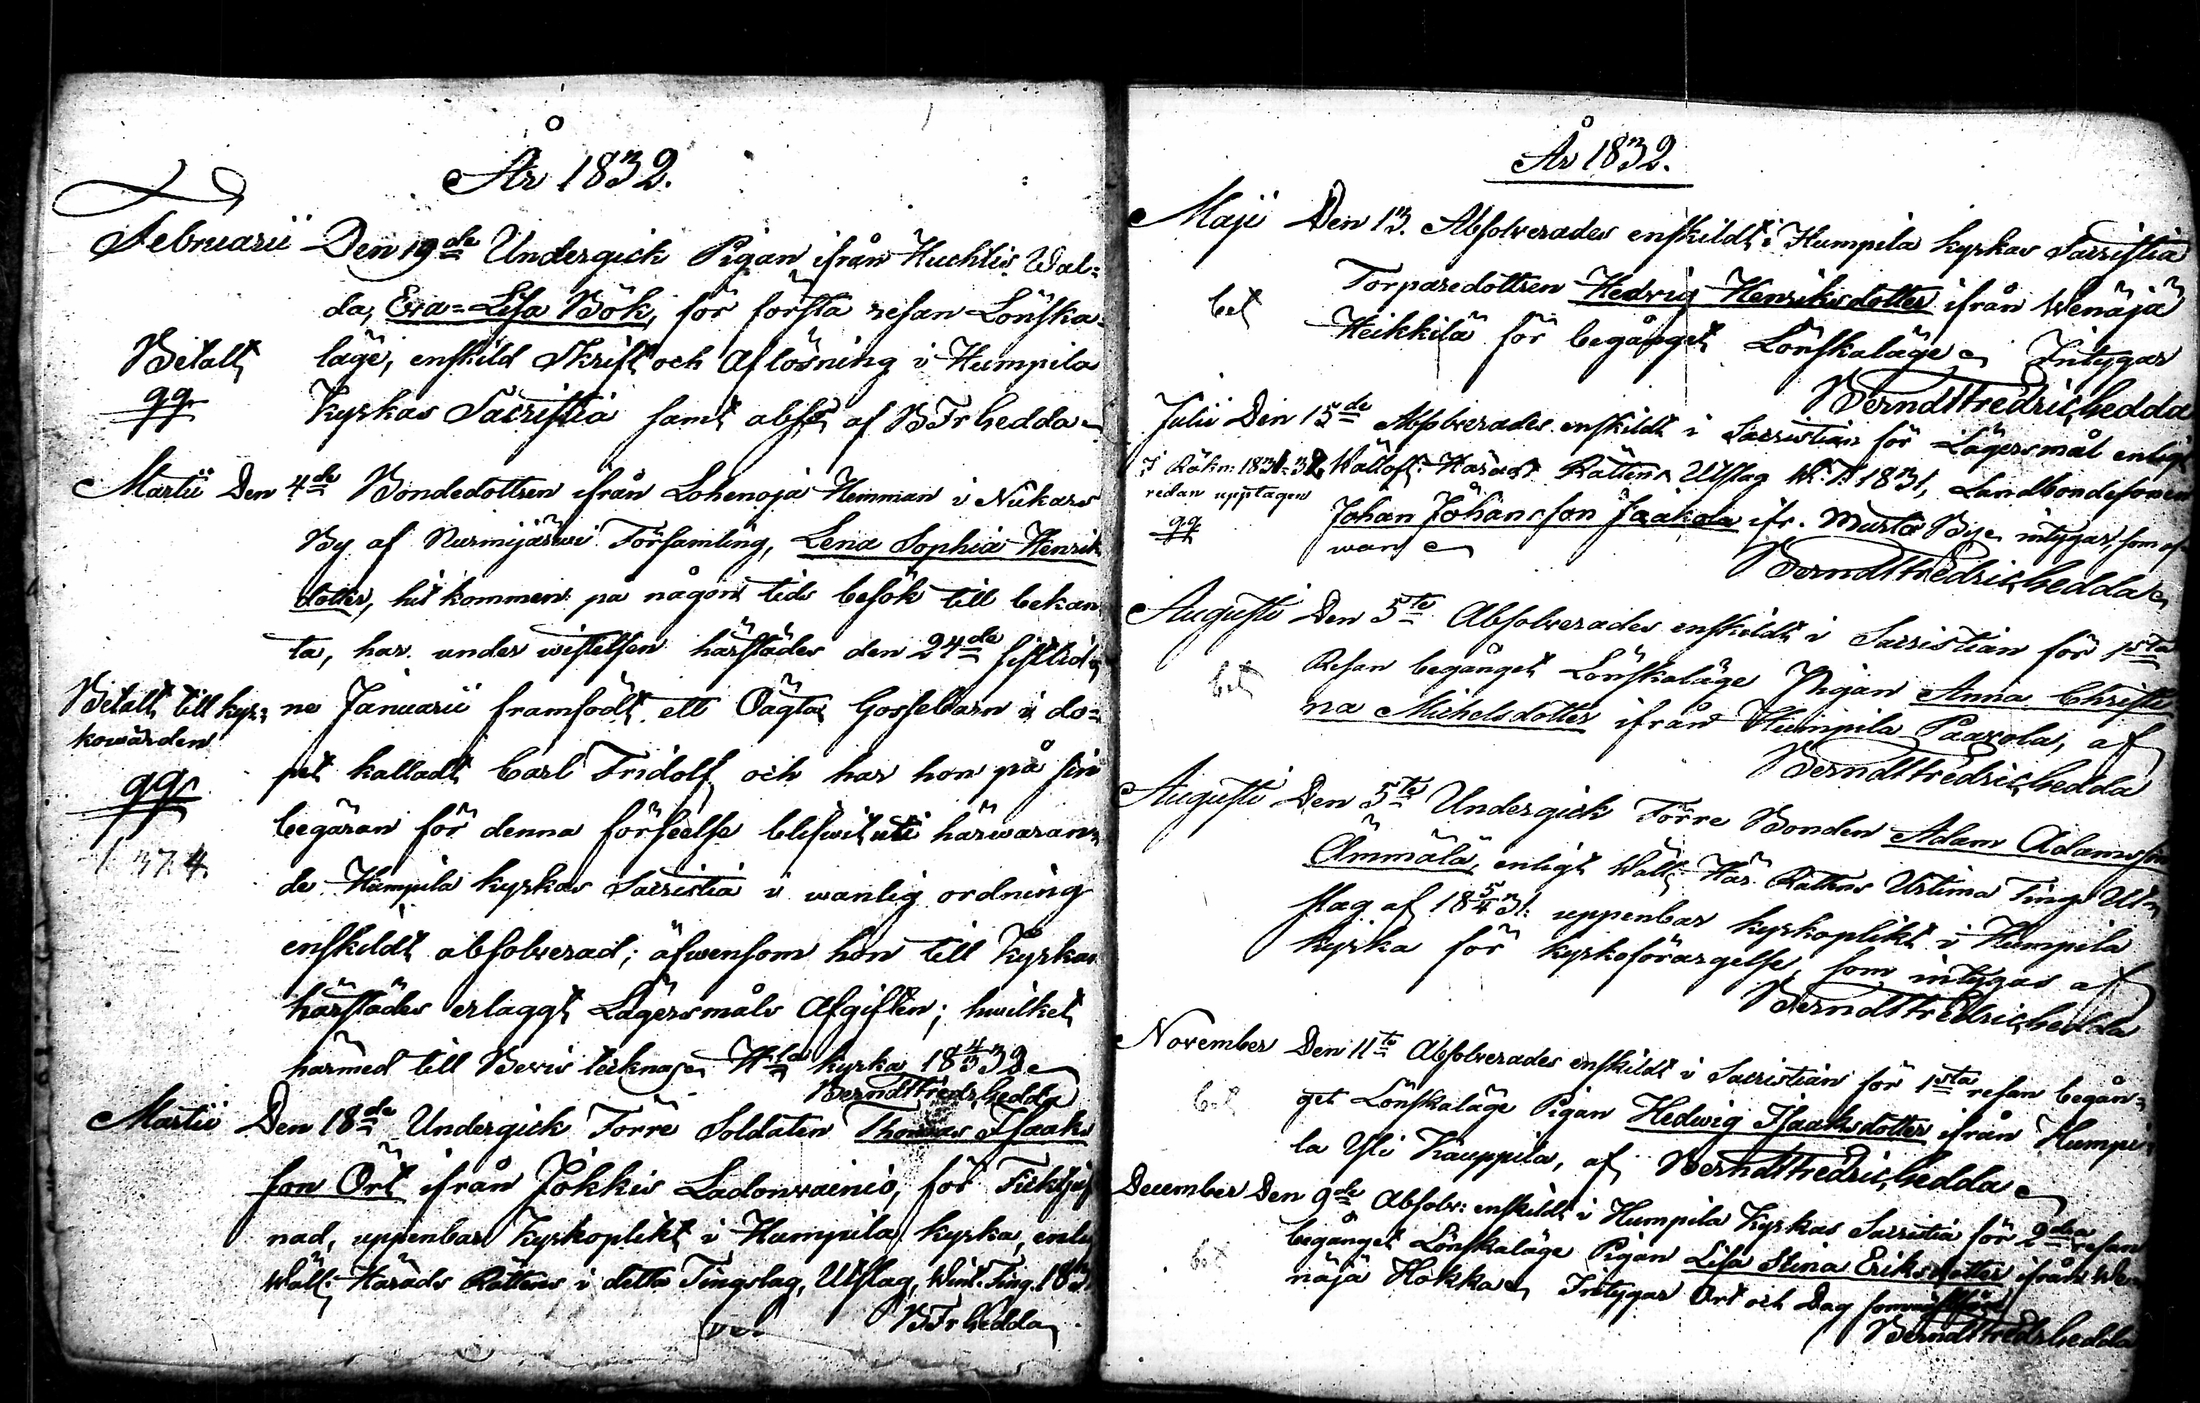 År 1832.
Februarii Den 19de Undergick Pigan ifrån Huchtis Wal=
da, Eva=Lisa Böök, för första resan Lönska=
Betalt läge, enskild Skrift och Aflösning i Humpila
gg Kyrkas Sacristia samt abs. af B Fr Chedda
Martii Den 4de Bondedottren ifrån Lohenoja Hemman i Nukars
By af Nurmijärwi Församling, Lena Sophia Henriks
dotter, hit kommen på någon tids besök till bekan
ta, har under wistelsen härstädes den 24de sistlid
Betalt till kyr= ne Januarii framfödt ett Oägta Gossebarn i do=
kowärden
gg pet kalladt Carl Fridolf och har hon på sin
begäran för denna förseelse blifwit uti härwaran=
de Humpila kyrkas Sacristia i wanlig ordning
enskildt absolverad; äfwensom hon till Kyrkan
härstädes erlaggt Lägersmåls Afgiften; hwilket
härmed till Bevis tecknas Hla kyrka 18 4/3 32
Berndt Fredr Chedda
Martii Den 18de Undergick Förre Soldaten Thomas Isaaks
son Ört ifrån Jokkis Ladonwainio, för
nad, uppenbar Kyrkoplikt i Humpila kyrka, enl
Wäll. Härads Rättens i detta Tingslag, Utslag, Wint. Ting. 18
B Fr Chedda
År 1832.
Maji Den 13. Absolverades enskildt i Humpila kyrkas Sacristia
bet Torparedottren Hedvig Henriksdotter ifrån Wenäjä
Heikkilä för begånget Lönskaläge Intygar
Berndt Fredric Chedda
Julii Den 15de Absolverades enskildt i Sacristian för Lägersmål enligt
I Räkn: 1831-32 Wällofl. Härads Rättens Utslag W. T. 1831, Landbondesonen
redan upptagen
gg Johan Johansson Jaakola ifr. Murto By intygar, som of
wan
Berndt Fredric Chedda
Augusti Den 5te Absolverades enskildt i Sacristian för 1sta
bet Resan begånget Lönskaläge Pigan Anna Christi
na Michelsdotter ifrån Humpila Paavola, af
Berndt Fredric Chedda
Augusti Den 5te Undergick Förre Bonden Adam Adamsson
Ämmälä, enligt Wäll. Här. Rättens Urtima Tings Ut=
slag af 18 5/4 31. uppenbar kyrkoplikt i Humpila
kyrka för kyrkoförargelse, som intygas af
Berndt Fredric Chedda
November Den 11te Absolverades enskildt i Sacristian för 1sta resan begån=
bet get Lönskaläge Pigan Hedwig Isaaksdotter ifrån Humpi
la Yli Kauppila, af Berndt Fredric Chedda
December Den 9de Absolv: enskildt i Humpila Kyrkas Sacristia för 2dra resan
bet begånget Lönskaläge Pigan Lisa Stina Eriksdotter ifrån We
näjä Hokka Intygar Ort och Dag som
Berndt Fredr Chedda